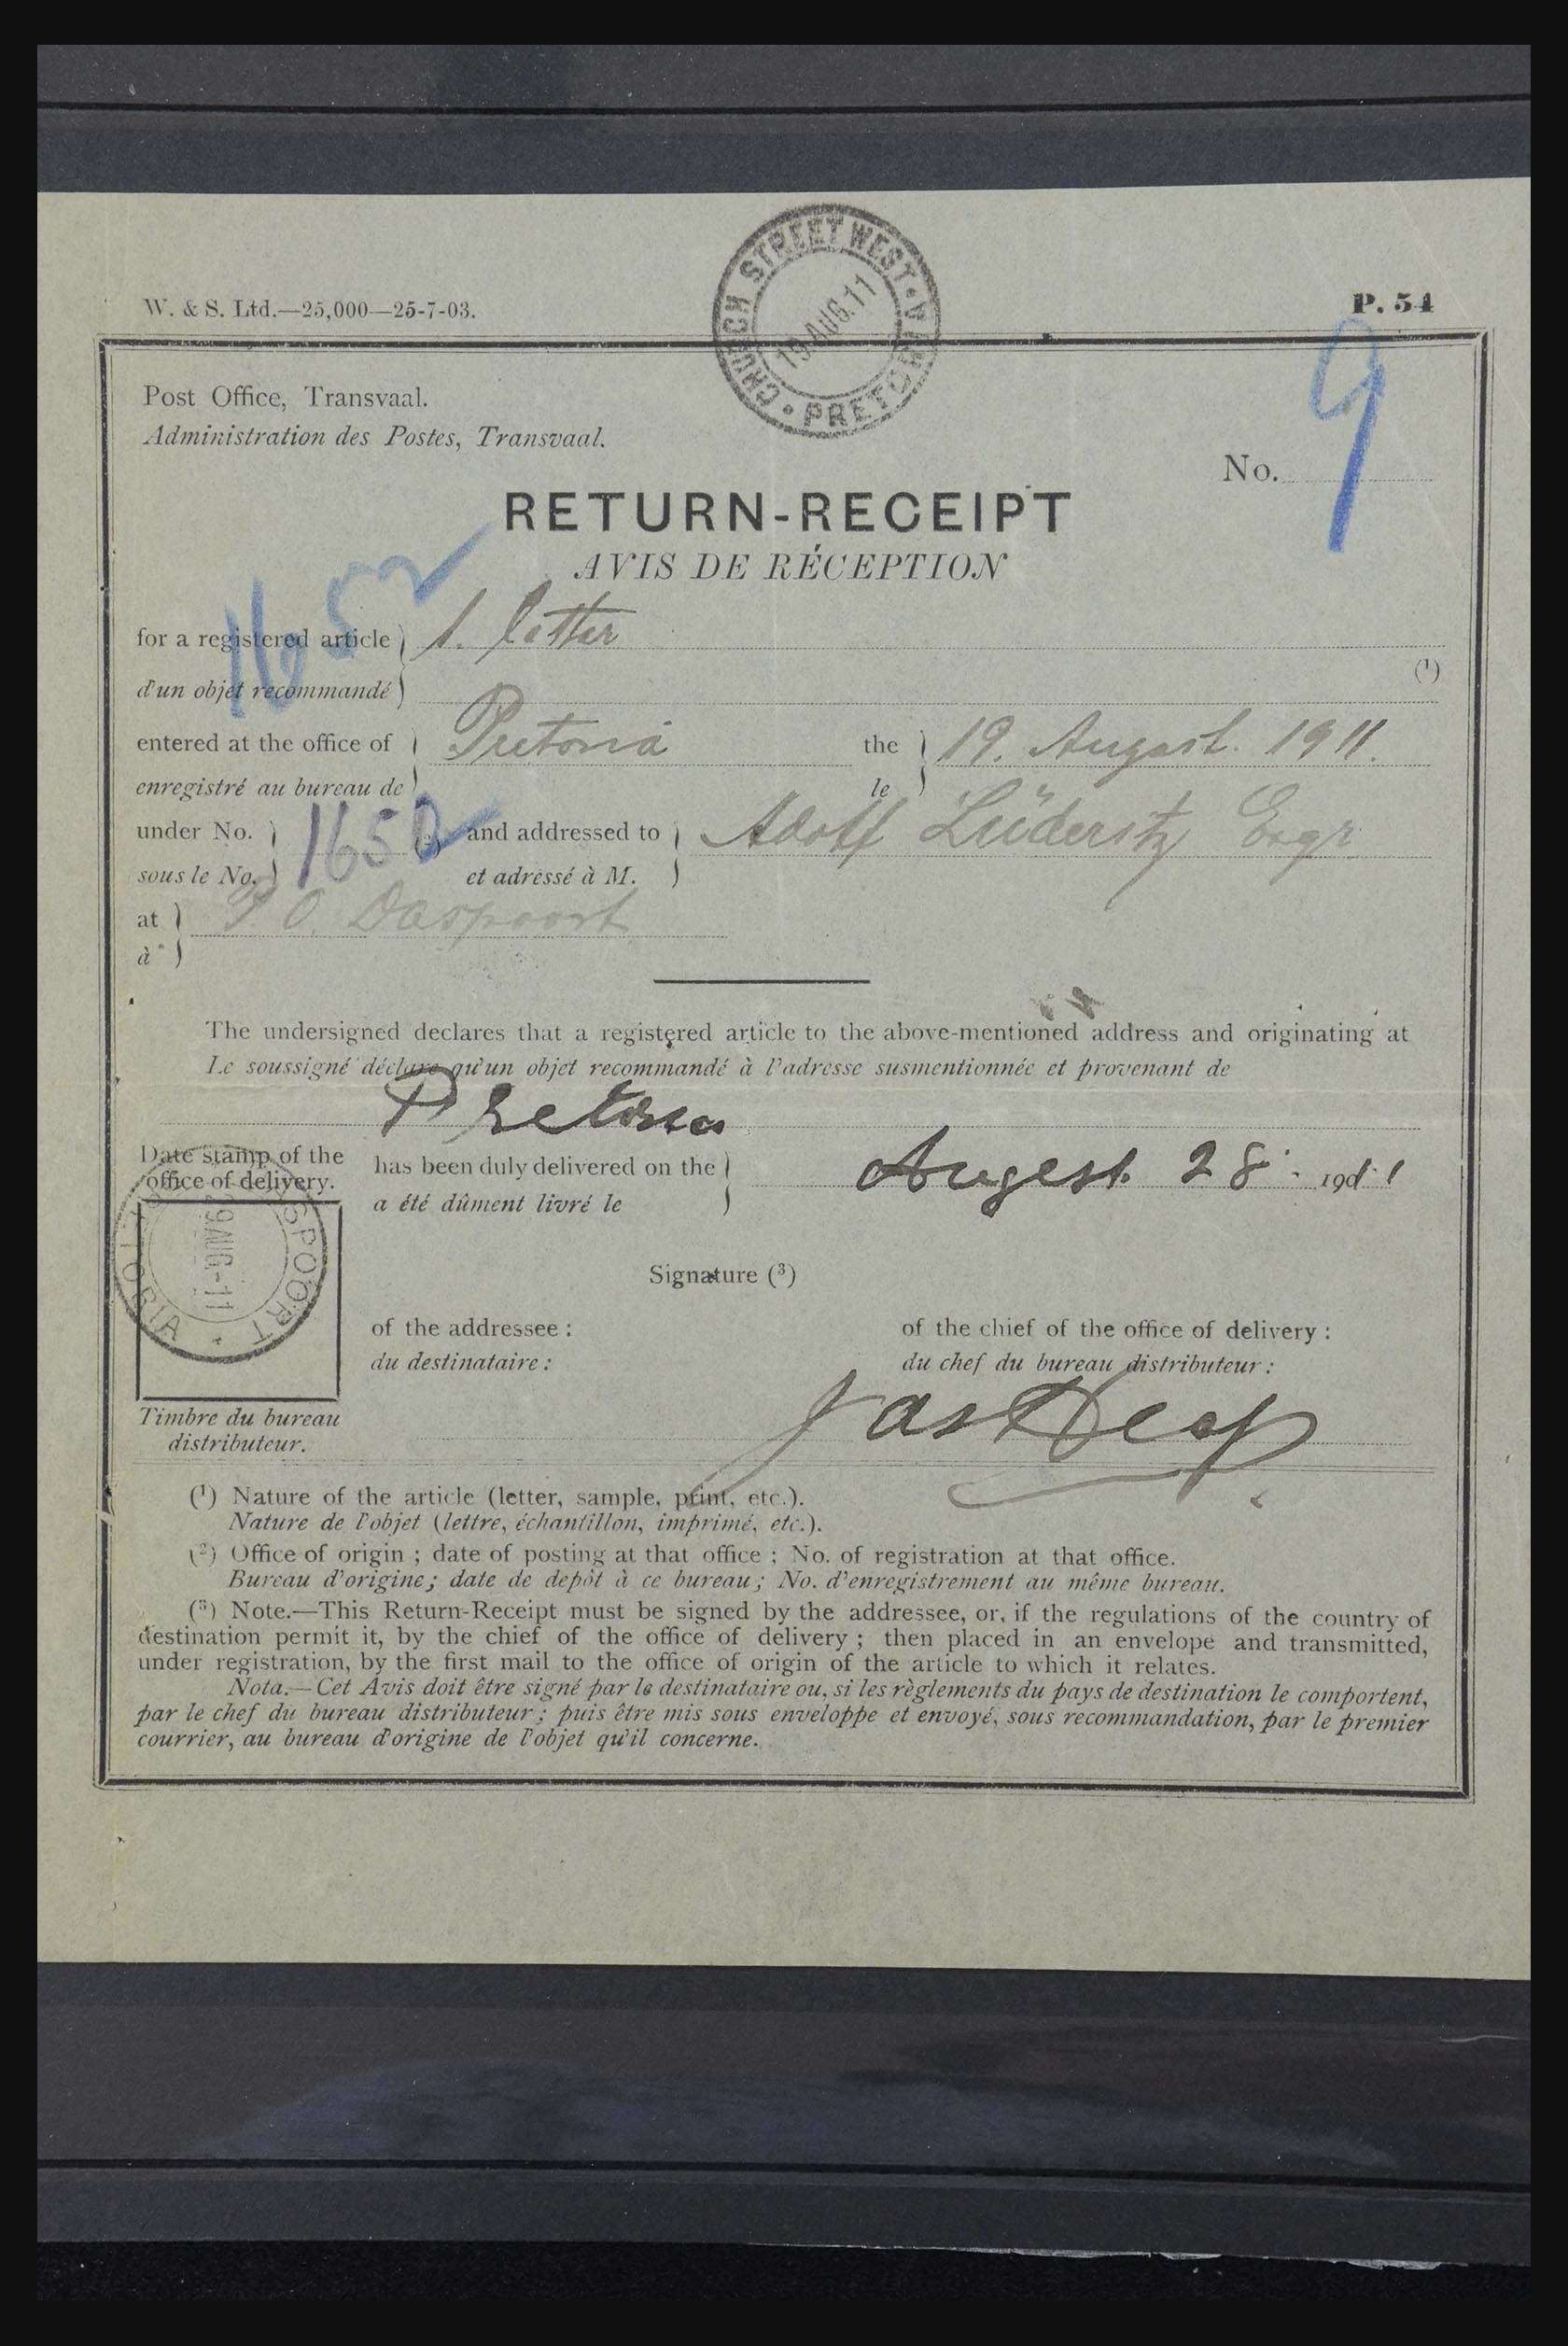 CHURCH STREET WEST • PRETORIA
19 AUG. 11
W. & S. Ltd.—25,000—25-7-03.
P. 54
Post Office, Transvaal.
Administration des Postes, Transvaal.
No. 9
RETURN-RECEIPT
AVIS DE RÉCEPTION
1652
for a registered article 1. letter
d'un objet recommandé (1)
entered at the office of Pretoria the 19. August. 1911.
enregistré au bureau de le
under No. 1652 (2) and addressed to Adolf Lüderitz Esqr
sous le No. et adressé à M.
at P. O. Daspoort
à
The undersigned declares that a registered article to the above-mentioned address and originating at
Le soussigné déclare qu'un objet recommandé à l'adresse susmentionnée et provenant de
Pretoria
Date stamp of the
office of delivery.
has been duly delivered on the Augest. 28 1911
a été dûment livré le
29 AUG - 11
Signature (3)
of the addressee :
of the chief of the office of delivery :
du destinataire :
du chef du bureau distributeur :
Timbre du bureau
distributeur.
(1) Nature of the article (letter, sample, print, etc.).
Nature de l'objet (lettre, échantillon, imprimé, etc.).
(2) Office of origin ; date of posting at that office ; No. of registration at that office.
Bureau d'origine; date de depôt à ce bureau; No. d'enregistrement au même bureau.
(3) Note.—This Return-Receipt must be signed by the addressee, or, if the regulations of the country of
destination permit it, by the chief of the office of delivery ; then placed in an envelope and transmitted,
under registration, by the first mail to the office of origin of the article to which it relates.
Nota.—Cet Avis doit être signé par le destinataire ou, si les règlements du pays de destination le comportent,
par le chef du bureau distributeur ; puis être mis sous enveloppe et envoyé, sous recommandation, par le premier
courrier, au bureau d'origine de l'objet qu'il concerne.